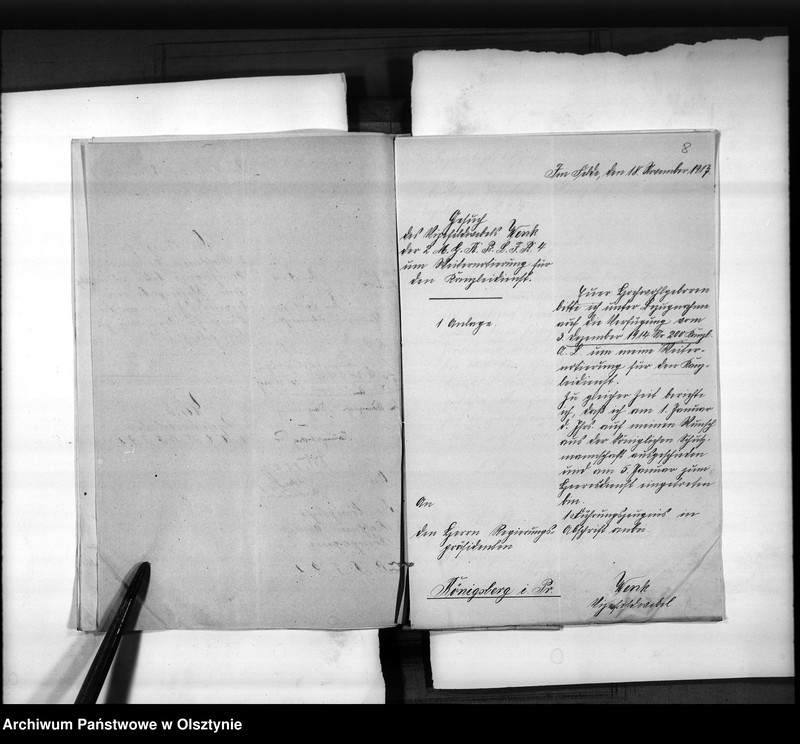 8
Im Felde, den 18. November 1917.
Gesuch
des Vizefeldwebels Wenk
der 2. M. G. K. R. L. I. R. 4
um Weiternotierung für
den Kanzleidienst.
1 Anlage.
Euer Hochwohlgeboren
bitte ich unter Bezugnahme
auf die Verfügung vom
3. Dezember 1914 Nr 200 Kanzl.
A. L. um meine Weiter-
notierung für den Kanz-
leidienst.
Zu gleicher Zeit berichte
ich, daß ich am 1. Januar
d. Jhrs auf meinen Wunsch
aus der Königlichen Schutz-
mannschaft ausgeschieden
und am 5. Januar zum
Heeresdienst eingetreten
bin.
1 Führungszeugnis in
Abschrift anbei
An
den Herrn Regierungs-
präsidenten
Königsberg i. Pr.
Wenk
Vizefeldwebel
Archiwum Państwowe w Olsztynie